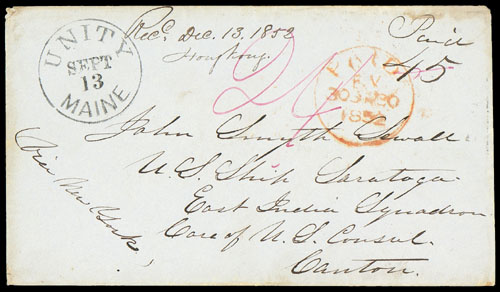 UNITY
SEPT
13
MAINE
Recd. Dec. 13, 1852
Hongkong.
Paid
45
24
PAID
1852
John Smyth Sewall
U.S. Ship Saratoga
East India Squadron
Care of U.S. Consul.
Canton.
Via New York,